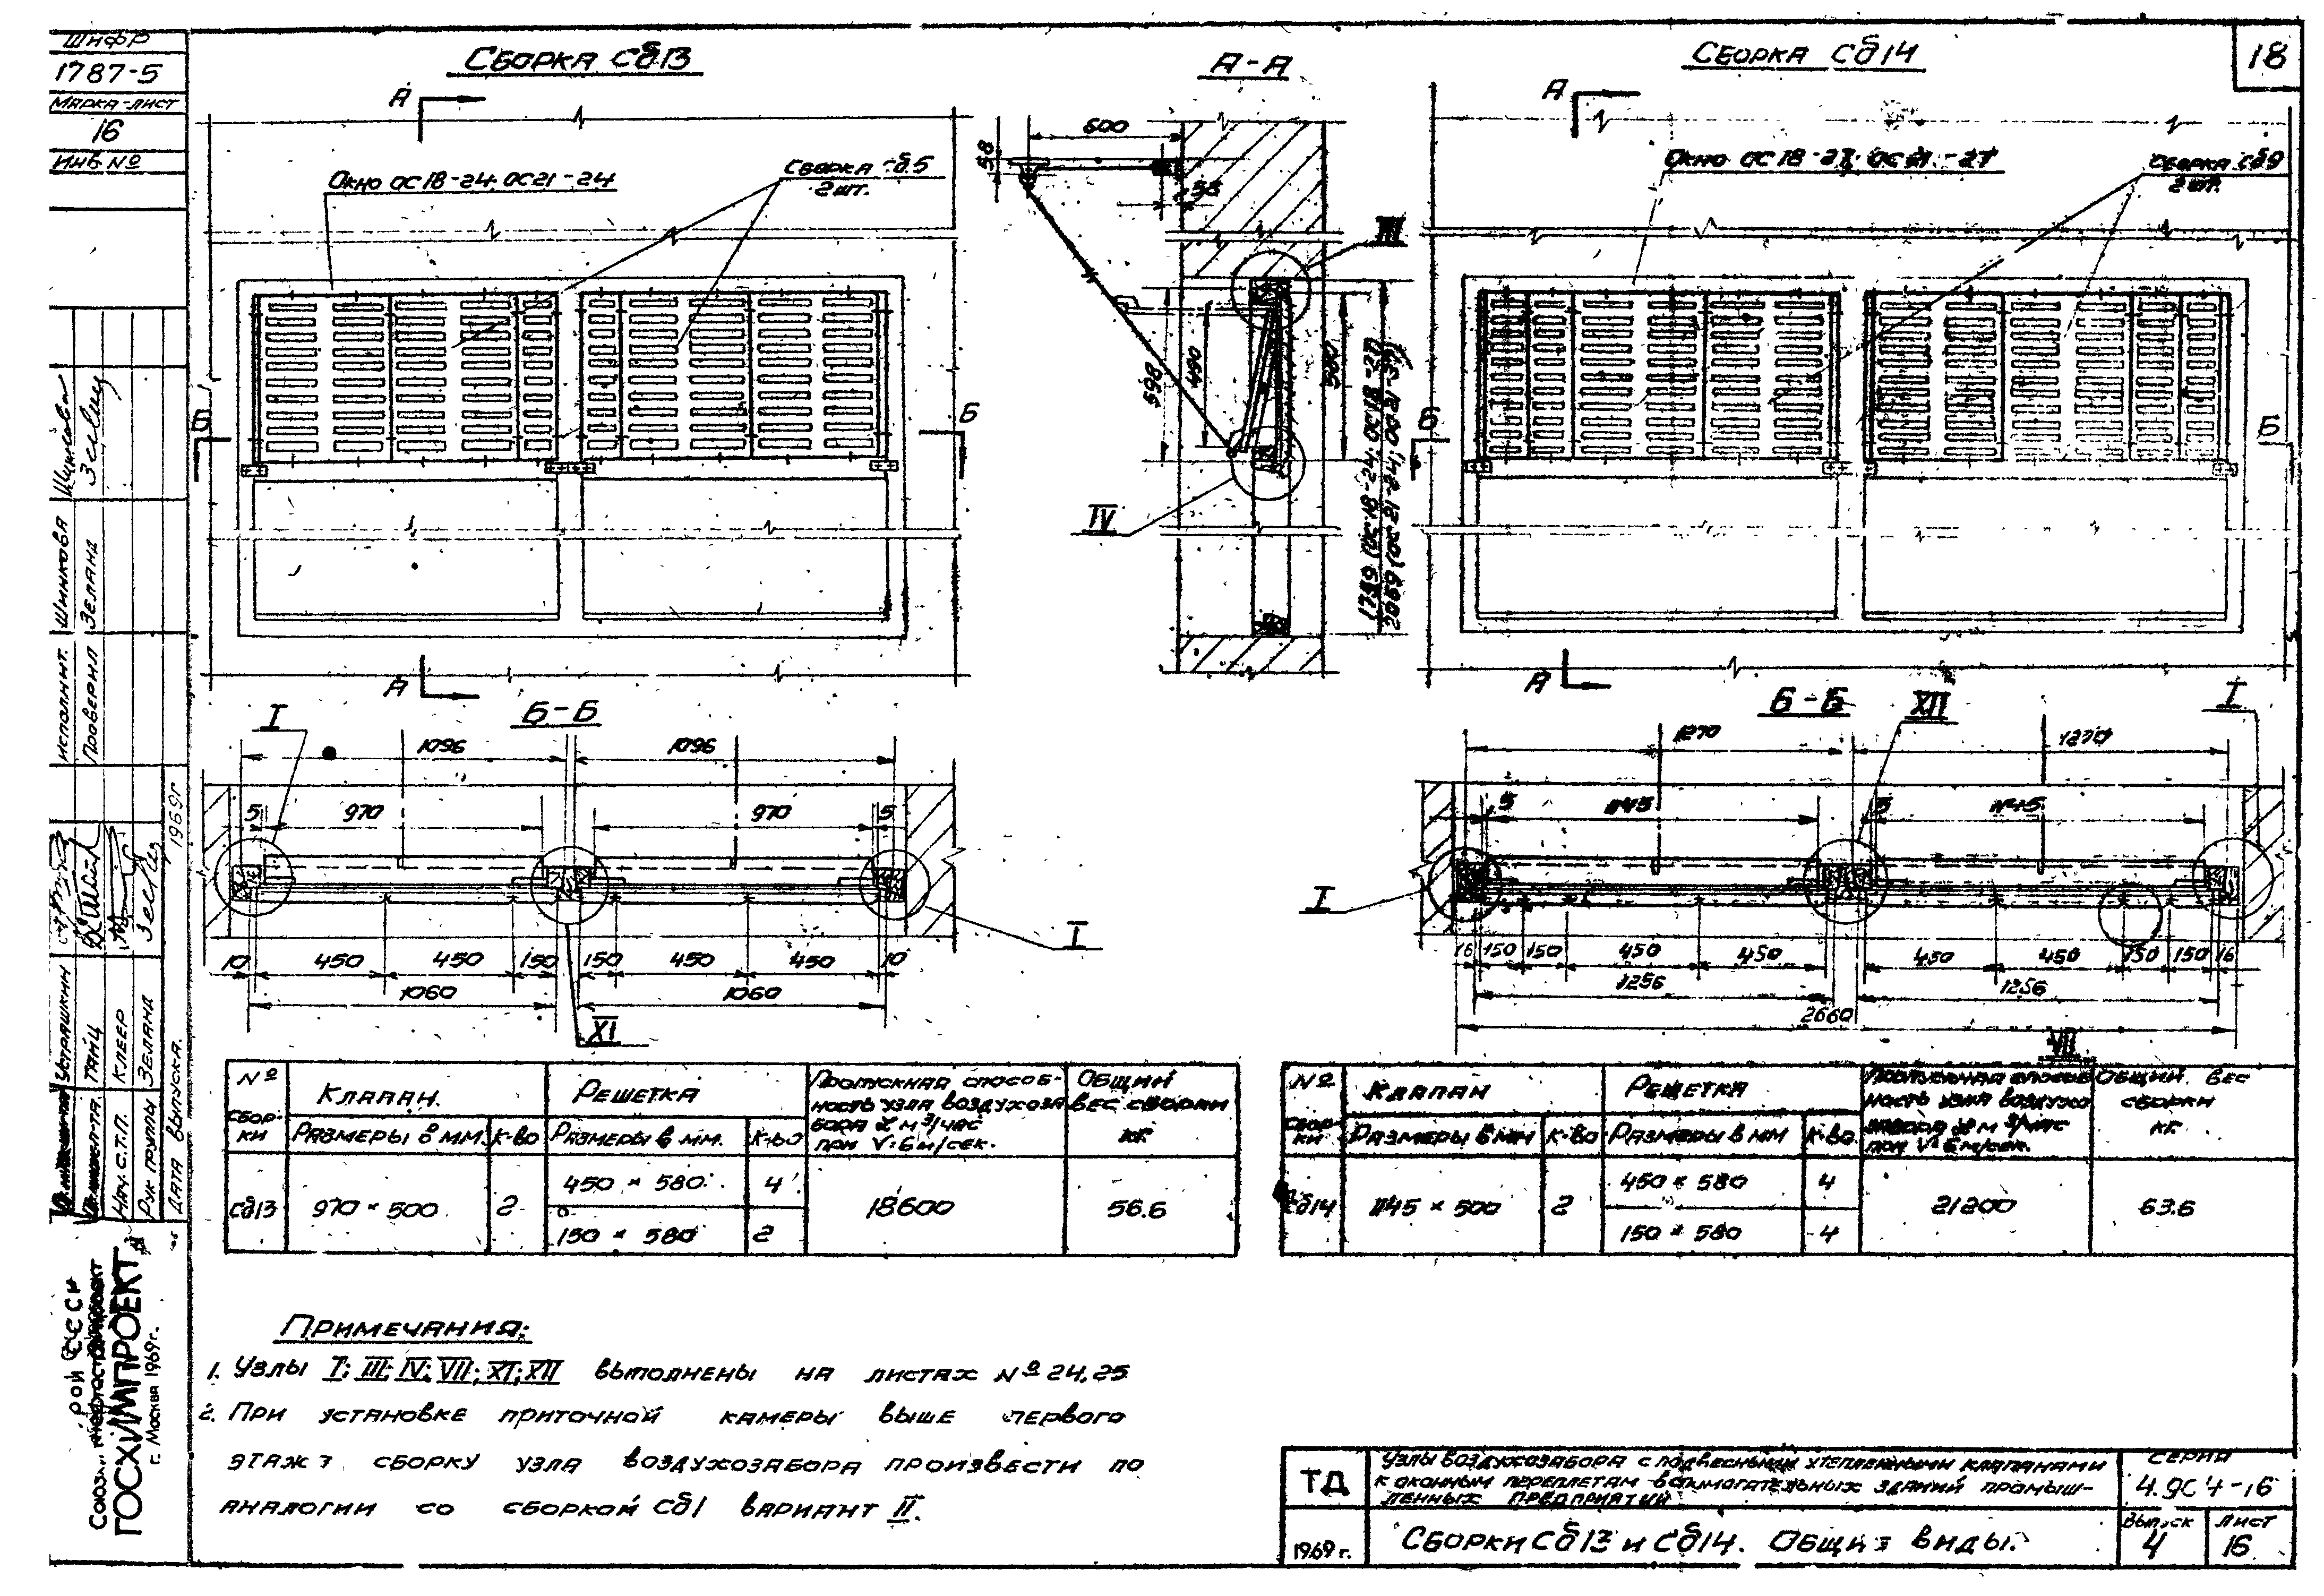 Шифр
1787-5
Марка-лист
16
Инв №
18
Сборка Сб13
А-А
Сборка Сб14
А
Окно ОС18-24; ОС21-24
Сборка Сб5
2 шт.
Б
Б
А
600
58
58
III
598
490
500
IV
1799 (ОС18-24; ОС18-27)
2099 (ОС21-24; ОС21-27)
А
Окно ОС18-27; ОС21-27
Сборка Сб9
2 шт.
Б
Б
А
Б-Б
I
1096
1096
5
970
970
5
I
10
450
450
150
150
450
450
10
1060
1060
XI
Б-Б
XII
I
1270
1270
5
1145
5
1145
I
16
150
150
450
450
450
450
150
150
16
1256
1256
2660
VII
№ сбор-ки
Клапан
Решетка
Пропускная способ-
ность узла воздухоза
бора в м³/час
при V=6м/сек.
Общий
вес сборки
кг.
Размеры в мм.
к-во
Размеры в мм.
к-во
Сб13
970 × 500
2
450 × 580
4
150 × 580
2
18600
56.6
№ сбор-ки
Клапан
Решетка
Пропускная способ
ность узла воздухо
забора в м³/час
при V=6м/сек.
Общий вес
сборки
кг.
Размеры в мм
к-во
Размеры в мм
к-во
Сб14
1145 × 500
2
450 × 580
4
150 × 580
4
21200
63.6
Примечания:
1. Узлы I; III; IV; VII; XI; XII выполнены на листах № 24, 25
2. При установке приточной камеры выше первого
этажа сборку узла воздухозабора произвести по
аналогии со сборкой Сб1 вариант II.
ТД
Узлы воздухозабора с подвесными утепленными клапанами
к оконным переплетам вспомогательных зданий промыш-
ленных предприятий
Серия
4.904-16
1969 г.
Сборки Сб13 и Сб14. Общие виды.
Выпуск
4
Лист
16
Исполнит. Шинкова
Проверил Зеланд
Устрашкин
Таиц
Нач. С.Т.П. Клеер
Рук группы Зеланд
Дата выпуска. 1969г
ГОСХИМПРОЕКТ
г. Москва 1969г.